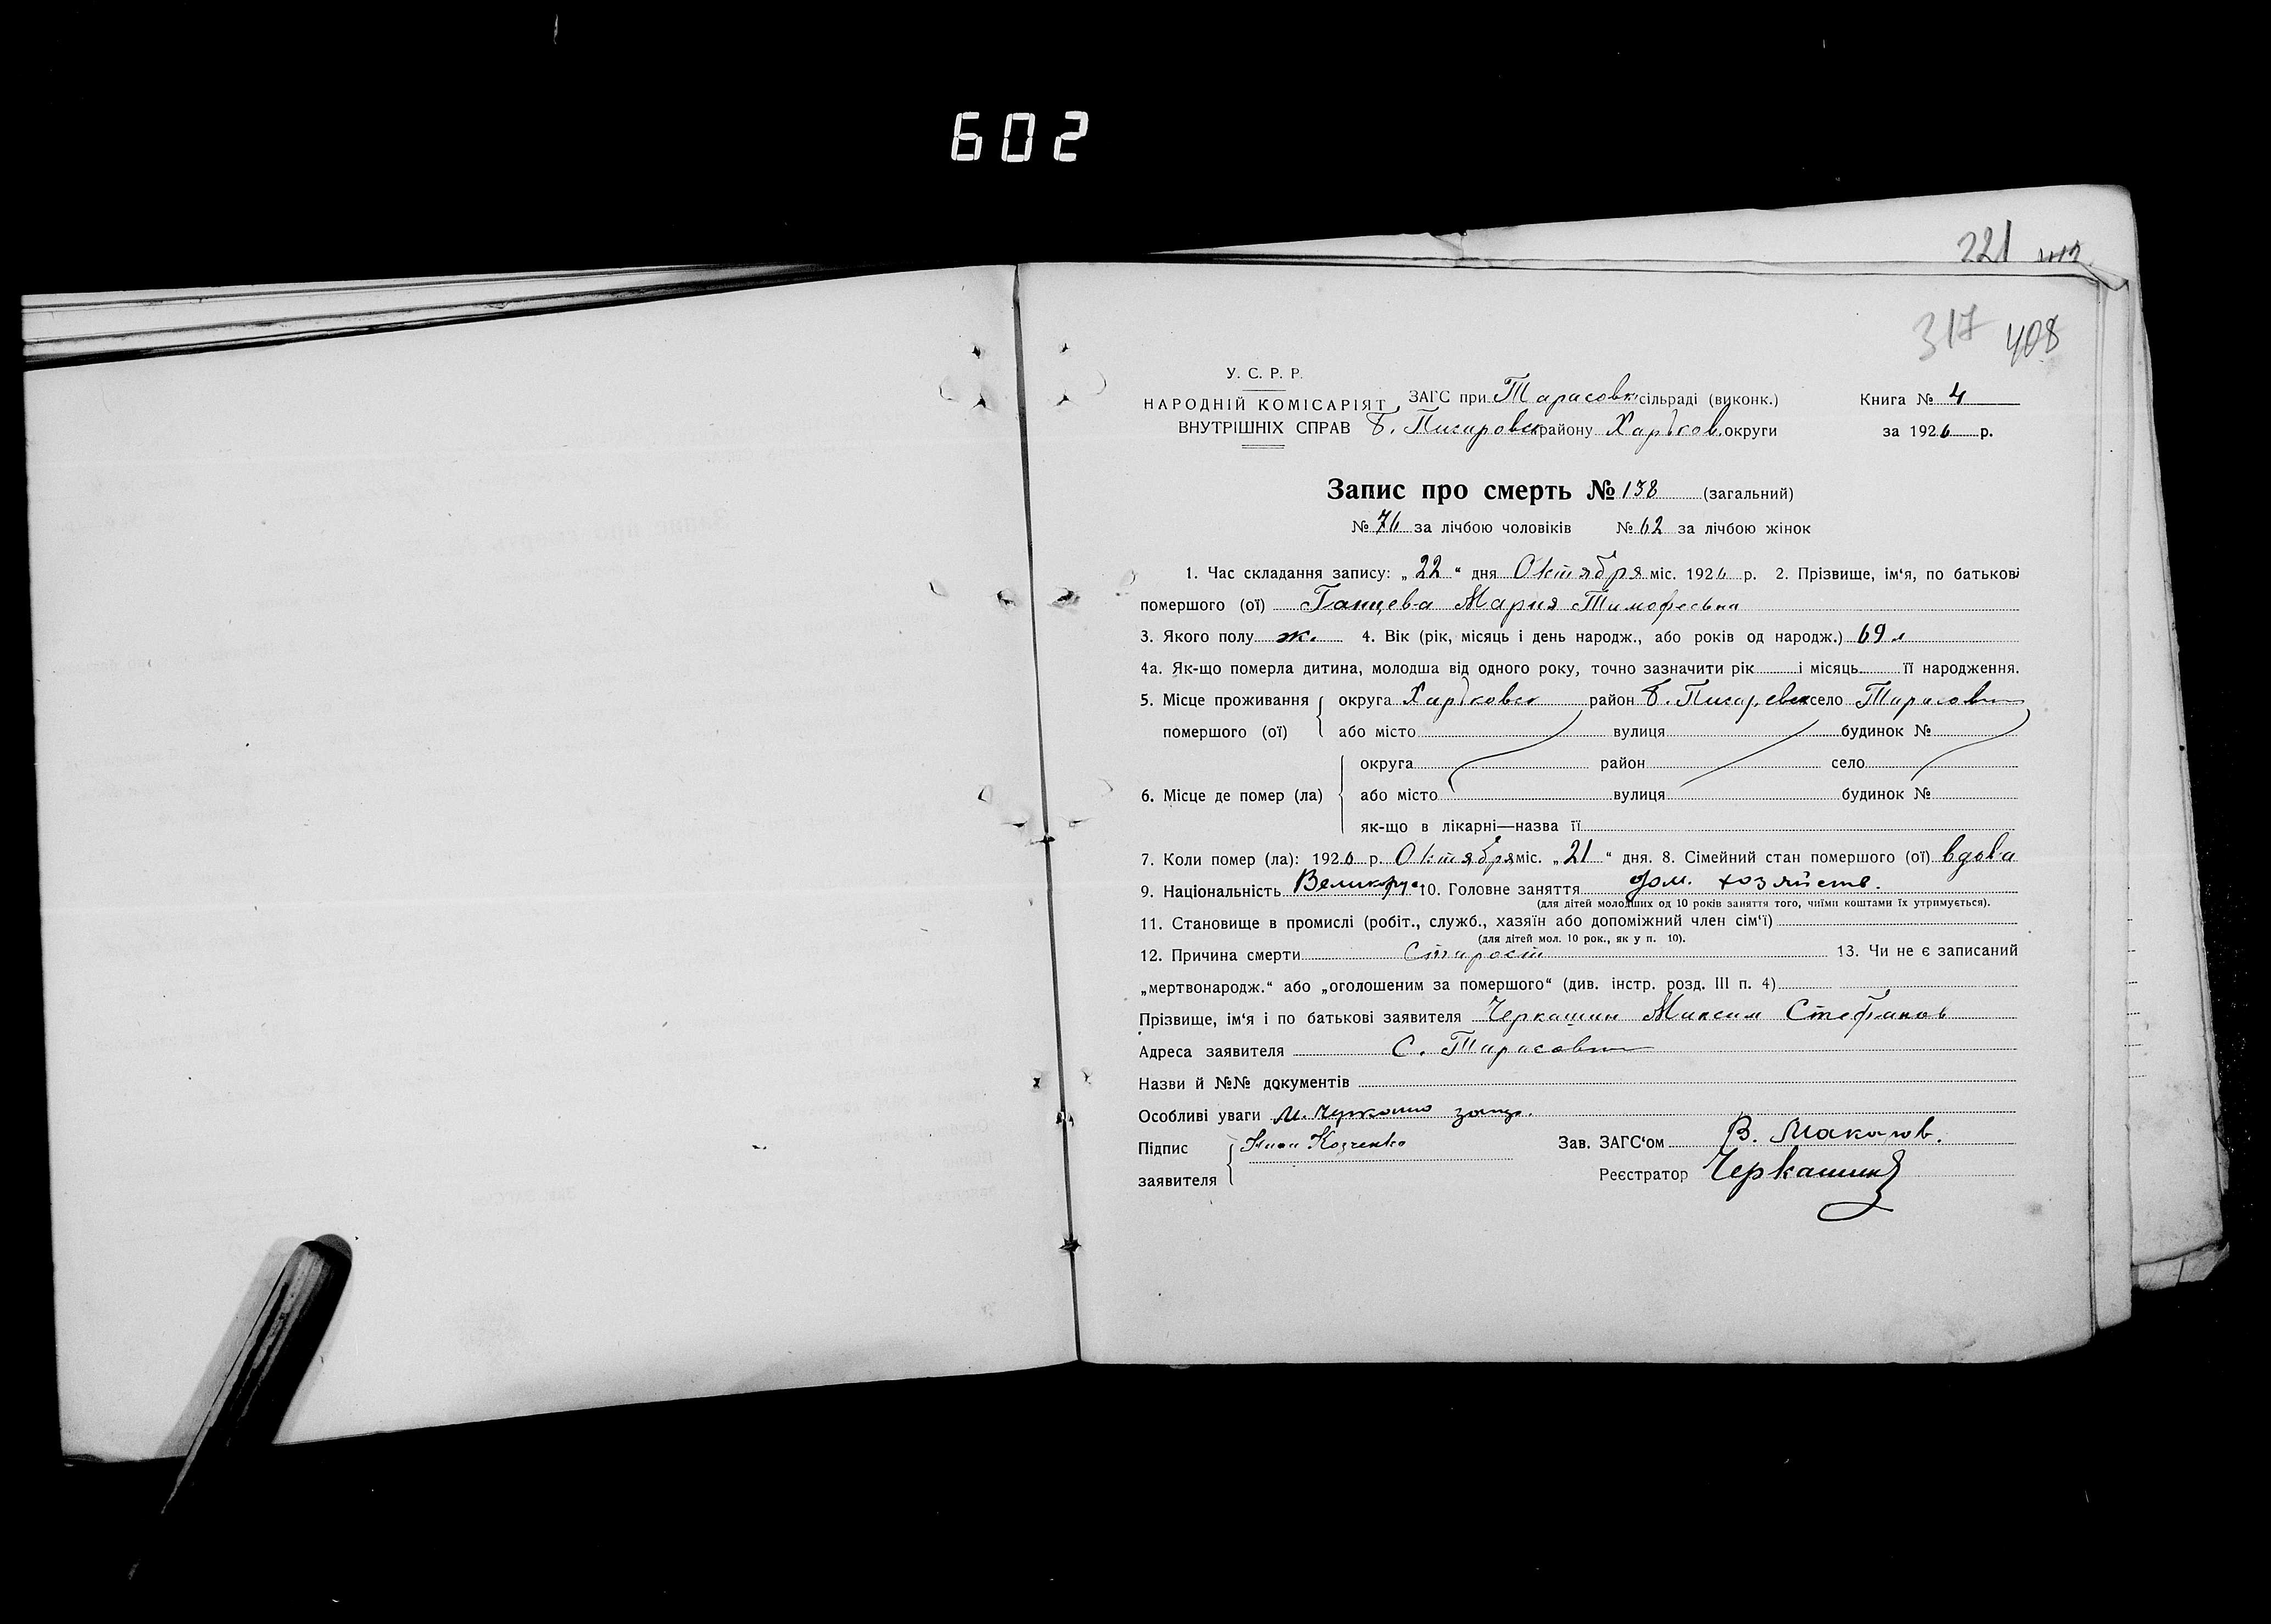 602
221
317 408
У. С. Р. Р.
НАРОДНІЙ КОМІСАРІЯТ ЗАГС при Тарасовк сільраді (виконк.) Книга № 4
ВНУТРІШНІХ СПРАВ Б. Писаровск району Харьков. округи за 1926 р.
Запис про смерть № 138 (загальний)
№ 76 за лічбою чоловіків № 62 за лічбою жінок
1. Час складання запису: „22“ дня Октября міс. 1926 р. 2. Прізвище, ім‘я, по батькові
помершого (ої) Ганцева Мария Тимофеевна
3. Якого полу ж. 4. Вік (рік, місяць і день народж., або років од народж.) 69 л
4а. Як-що померла дитина, молодша від одного року, точно зазначити рік і місяць її народження.
5. Місце проживання округа Харьковск район Б. Писаревск село Тарасовк
помершого (ої) або місто вулиця будинок №
округа район село
6. Місце де помер (ла) або місто вулиця будинок №
як-що в лікарні—назва її
7. Коли помер (ла): 1926 р. Октября міс. „21“ дня. 8. Сімейний стан помершого (ої) вдова
9. Національність Великорус 10. Головне заняття дом. хозяйств.
(для дітей молодших од 10 років заняття того, чиїми коштами їх утримується).
11. Становище в промислі (робіт., служб., хазяїн або допоміжний член сім‘ї)
(для дітей мол. 10 рок., як у п. 10).
12. Причина смерти Старост 13. Чи не є записаний
„мертвонародж.“ або „оголошеним за помершого“ (див. інстр. розд. III п. 4)
Прізвище, ім‘я і по батькові заявителя Черкашин Максим Стефанов
Адреса заявителя С. Тарасовк
Назви й №№ документів
Особливі уваги М.
Підпис Зав. ЗАГС‘ом В. Макаров.
заявителя Реєстратор Черкашин